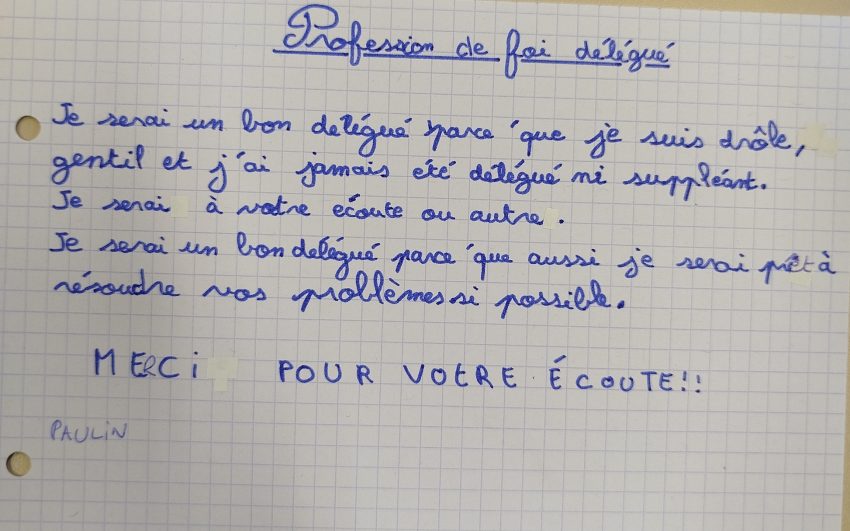 Profession de foi délégué
Je serai un bon délégué parce que je suis drôle,
gentil et j'ai jamais été délégué ni suppléant.
Je serai à votre écoute ou autre.
Je serai un bon délégué parce que aussi je serai prêt à
résoudre vos problèmes si possible.
MERCi POUR VOTRE ÉCOUTE!!
PAULiN